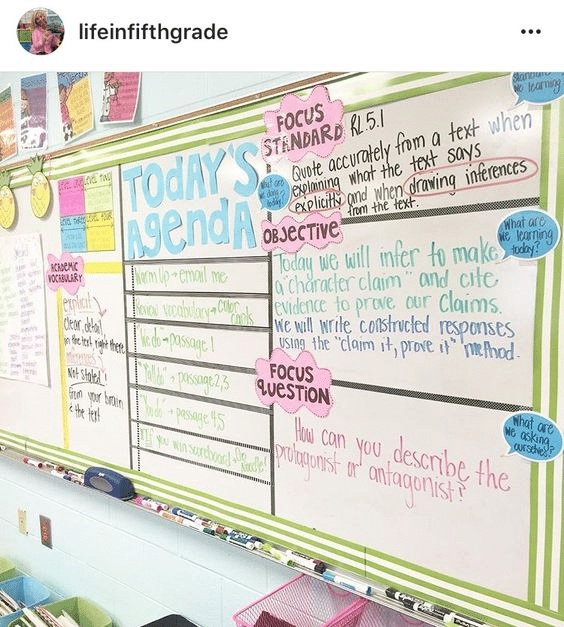 lifeinfifthgrade
TODAY'S
AgendA
Warm Up → email me
Review Vocabulary →
"We do" → passage 1
→ passage 2,3
→ passage 4,5
you win scoreboard → Go
Noodle!
LEVEL TWO
ACADEMIC
VOCABULARY
explicit
clear detail
in the text right there
inferences
Not stated!
From your brain
& the text
FOCUS
STANDARD
RL.5.1
Quote accurately from a text when
explaining what the text says
explicitly and when drawing inferences
from the text.
what are
we doing
today?
we learning
OBJECTIVE
Today we will infer to make
a "character claim" and cite
evidence to prove our claims.
We will write constructed responses
using the "claim it, prove it" method.
What are
we learning
today?
FOCUS
QUESTION
How can you describe the
protagonist or antagonist?
What are
we asking
ourselves?